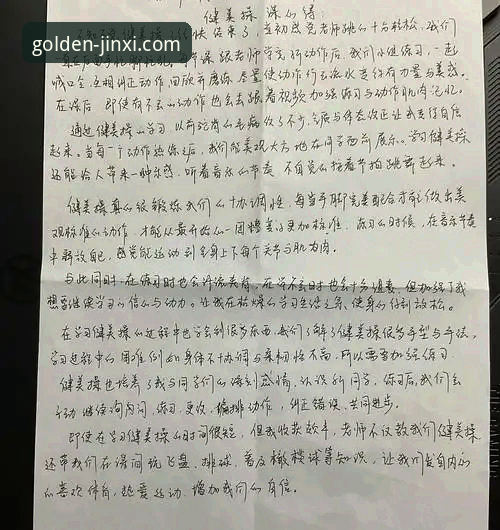 健美操课心得：
健美操 快结束了，当初感觉老师跳的十分轻松，我们
golden-jinxi.com
跟老师学完所有动作后，我们小组练习，一起
喊口令，互相纠正动作，回放并磨练，尽量使动作行云流水变得有力量与美感。
在课后，即使有不会的动作也会去跟着视频加强练习与动作肌肉记忆。
通过健美操的学习，以前 的毛病改了不少，气质与体态改正让我变得自信
起来。当每一个动作熟练之后，我们能美观大方地在同学面前展示。学习健美操
还能给人带来一种乐感，听着音乐的节奏，不自觉的 着节拍跳 起来。
健美操真的很锻炼我们的协调性，每当手脚完美配合才能做出美
观标准的动作，才能从最开始的一团糟变得更加标准，练习的时候，在音乐节奏
中解放自己，感觉能运动到全身上下每个关节与肌肉。
与此同时，在练习时也会 ，在学不会时也会十分沮丧，但加强了我
想要继续学习的信心与动力。让我在枯燥的学习生涯之余，使身心得到放松。
在学习健美操的过程中也学会到很多东西，我们了解了健美操很多手型与手法，
学习过程中的困难例如身体不协调与柔韧性不高，所以需要加强练习。
健美操也培养了我与同学们的深刻感情，认识新同学，练习后，我们会
主动继续询问，练习，更改，编排动作，纠正错误，共同进步。
即使在学习健美操的时间很短，但我收获颇丰，老师不仅教我们健美操，
还带我们在课间玩飞盘，排球，普及橄榄球等知识，让我们发自内心
的喜欢体育，热爱运动，增加我们的自信。